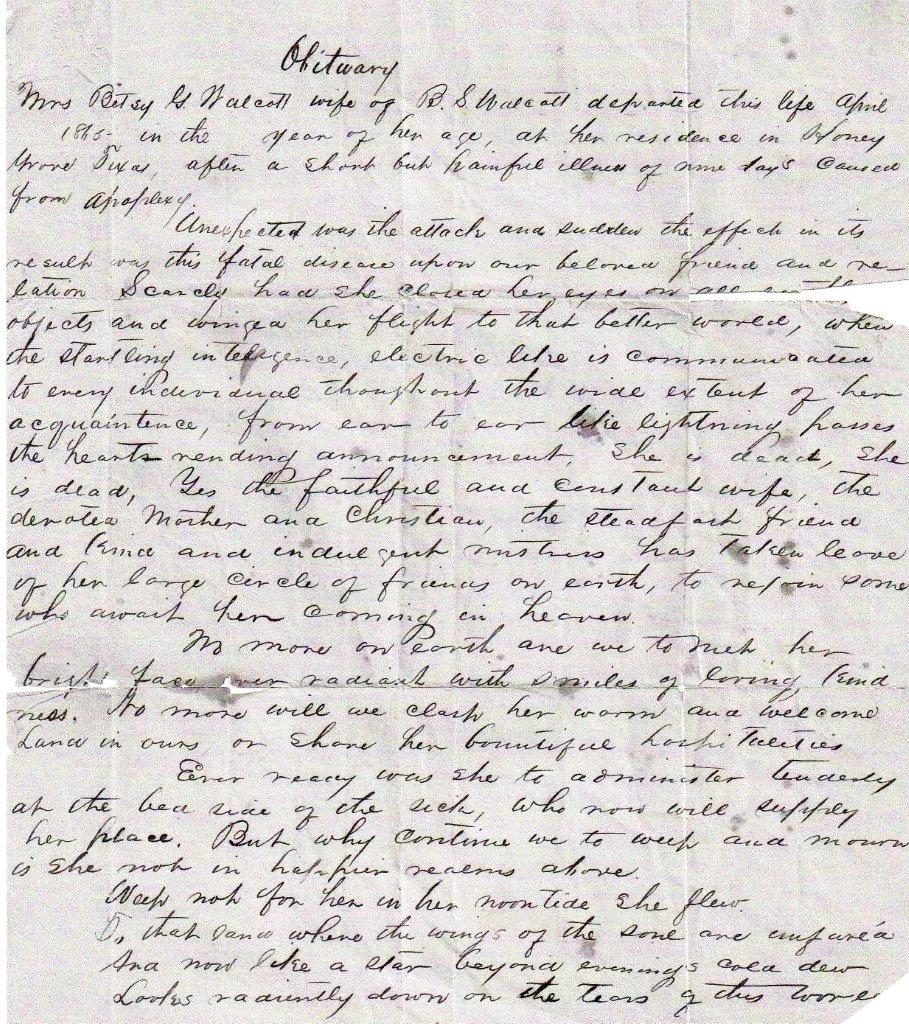 Obituary
Mrs Betsy G. Walcott wife of B. S. Walcott departed this life April
1865 in the year of her age, at her residence in Honey
Grove Texas, after a short but painful illness of nine days caused
from Apoplexy
Unexpected was the attack and sudden the effect in its
result was this fatal disease upon our beloved friend and re-
lation Scarcly had she closed her eyes on all
objects and winged her flight to that better world, when
the startling intelegence, electric like is communicated
to every individual thoughout the wide extent of her
acquaintence, from ear to ear like lightning passes
the hearts rending announcement, She is dead, She
is dead, Yes the faithful and constant wife, the
devoted Mother and Christian, the steadfast friend
and kind and indulgent mistress has taken leave
of her large circle of friends on earth, to rejoin some
who await her coming in heaven.
No more on earth are we to meet her
bright face ever radiant with smiles of loving kind
ness. No more will we clasp her warm and welcome
hand in ours, or share her bountiful hospitalities
Ever ready was she to administer tenderly
at the bed side of the sick, who now will supply
her place. But why continue we to weep and mourn
is she not in happier realms above.
Weep not for her in her noontide she flew
To that land where the wings of the soul are unfurl'd
And now like a star beyond evenings cold dew
Looks radiently down on the tears of this world